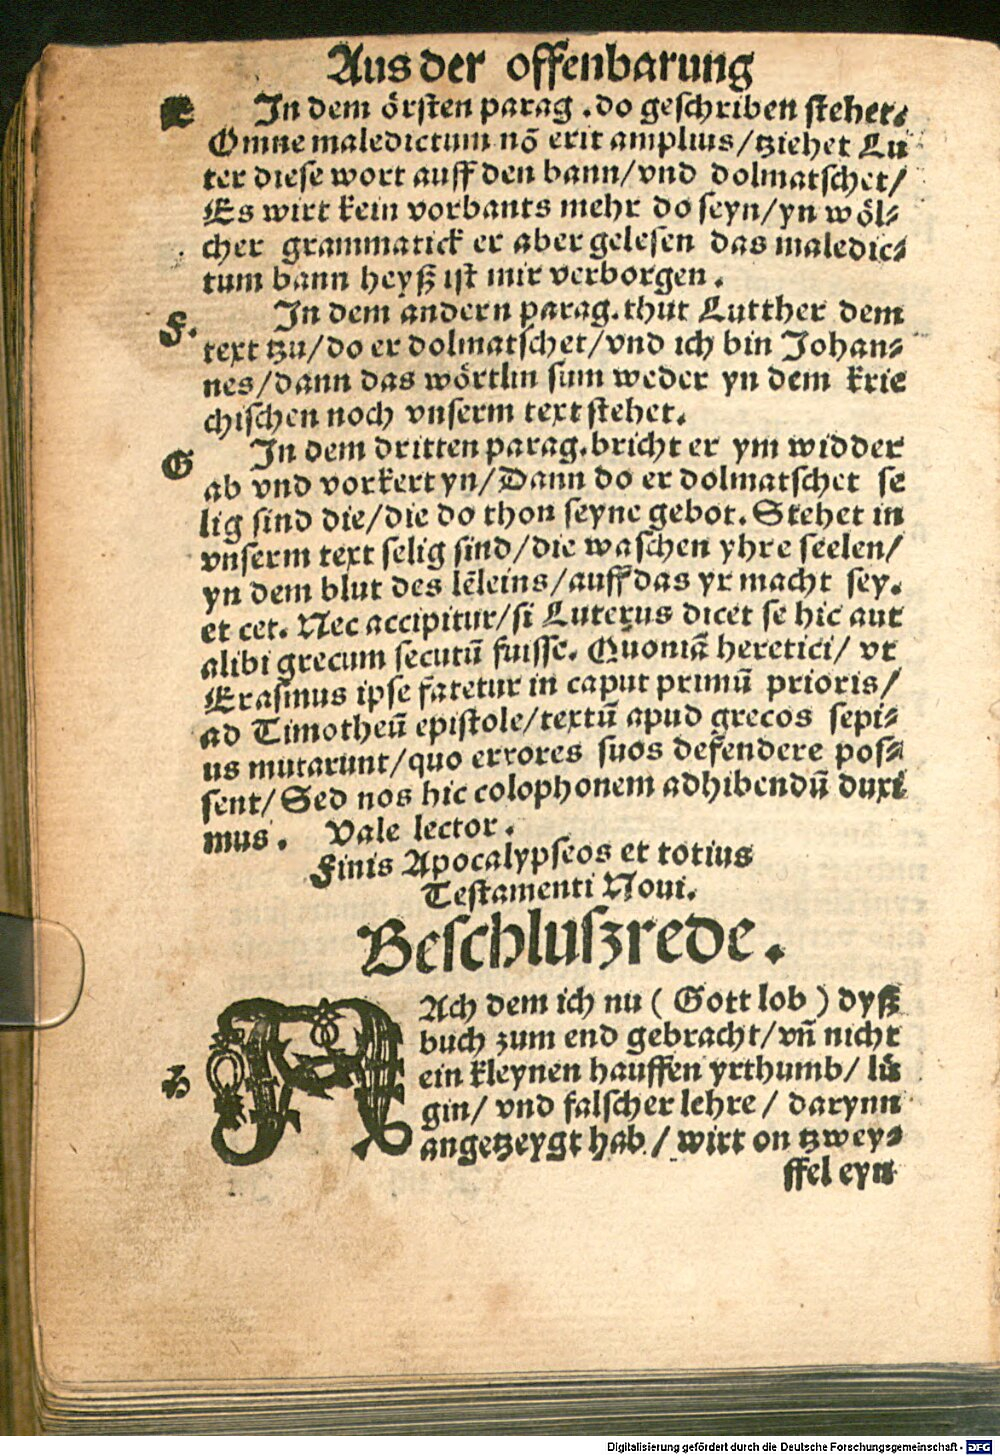 Aus der offenbarung
E In dem örsten parag. do geschriben stehet.
Omne maledictum nō erit amplius/tziehet Lu
ter diese wort auff den bann/vnd dolmatschet/
Es wirt kein vorbants mehr do seyn/yn wöl⸗
cher grammatick er aber gelesen das maledic⸗
tum bann heyß ist mir verborgen.
F. In dem andern parag. thut Lutther dem
text tzu/do er dolmatschet/vnd ich bin Johan⸗
nes/dann das wörtlin sum weder yn dem krie
chischen noch vnserm text stehet.
G In dem dritten parag. bricht er ym widder
ab vnd vorkert yn/Dann do er dolmatschet se
lig sind die/die do thon seyne gebot. Stehet in
vnserm text selig sind/die waschen yhre seelen/
yn dem blut des lēleins/auff das yr macht sey.
et cet. Nec accipitur/si Luterus dicet se hic aut
alibi grecum secutū fuisse. Quoniā heretici/ vt
Erasmus ipse fatetur in caput primū prioris/
ad Timotheū epistole/textū apud grecos sepi⸗
us mutarunt/quo errores suos defendere pos⸗
sent/Sed nos hic colophonem adhibendū duxi
mus. Vale lector.
Finis Apocalypseos et totius
Testamenti Noui.
Beschluszrede.
H NAch dem ich nu (Gott lob) dyß
buch zum end gebracht/vñ nicht
ein kleynen hauffen yrthumb/ lü
gin/ vnd falscher lehre/ darynn
angetzeygt hab/ wirt on tzwey⸗
ffel eyn
Digitalisierung gefördert durch die Deutsche Forschungsgemeinschaft - DFG